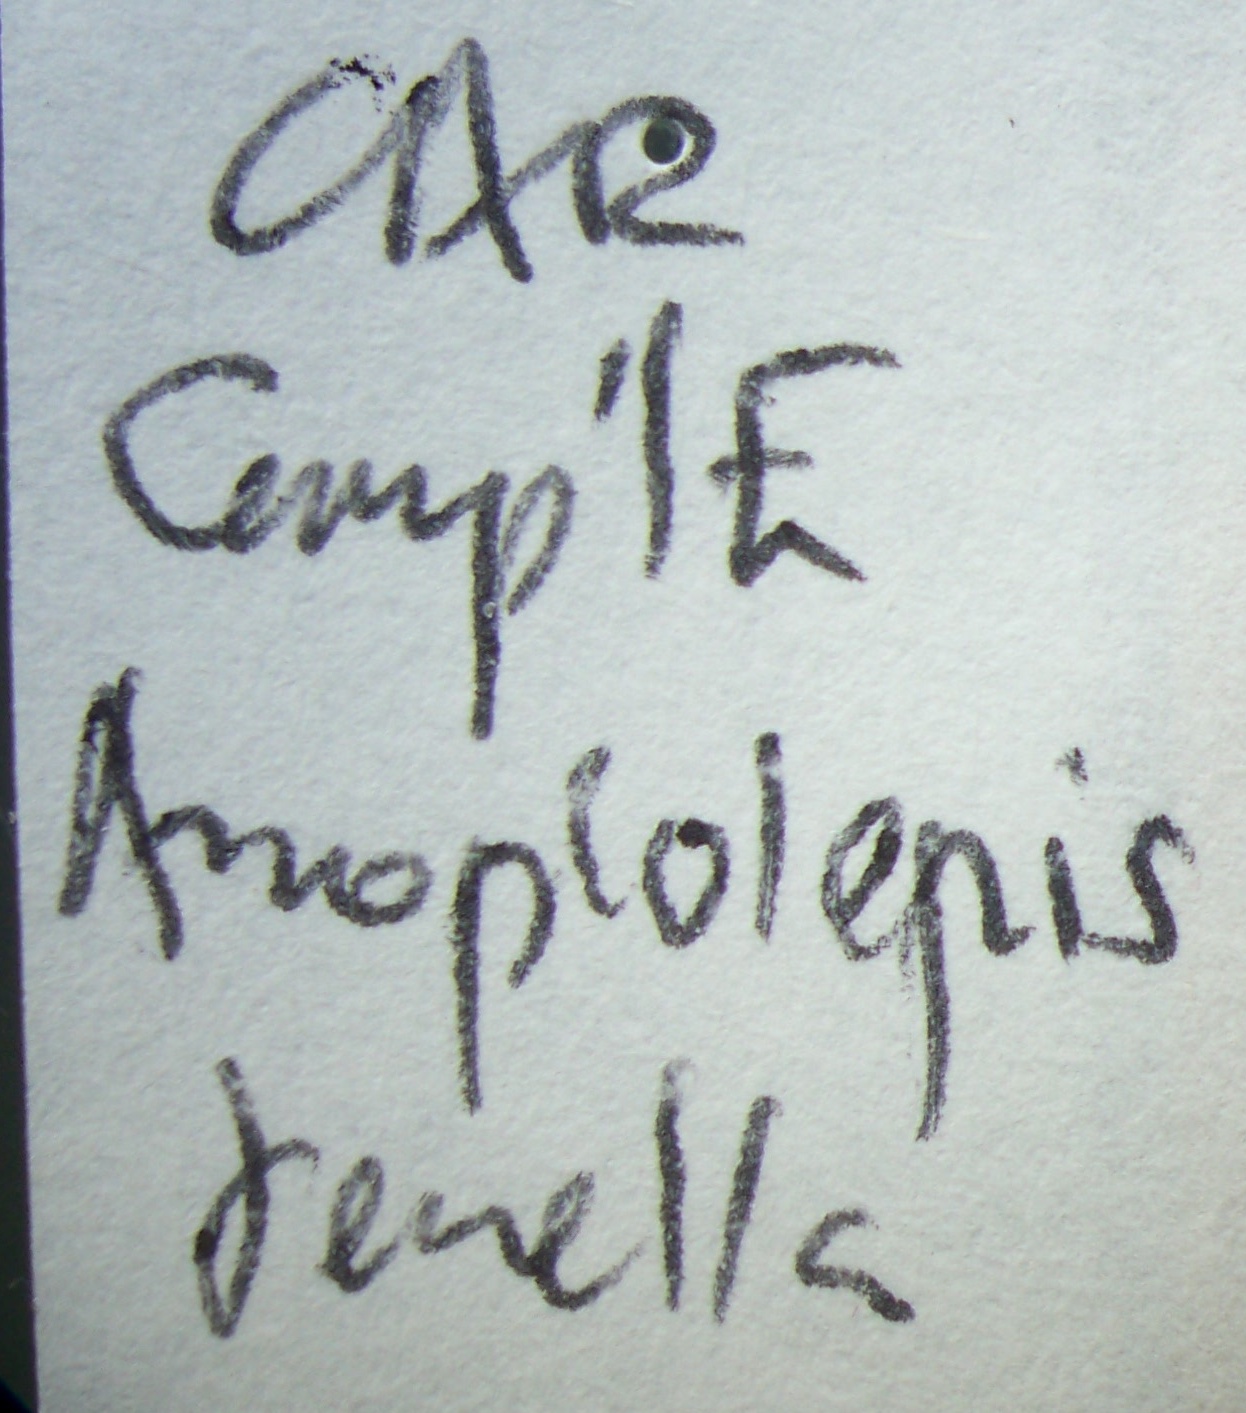 CAR
Camp'lE
Anoplolepis
tenella